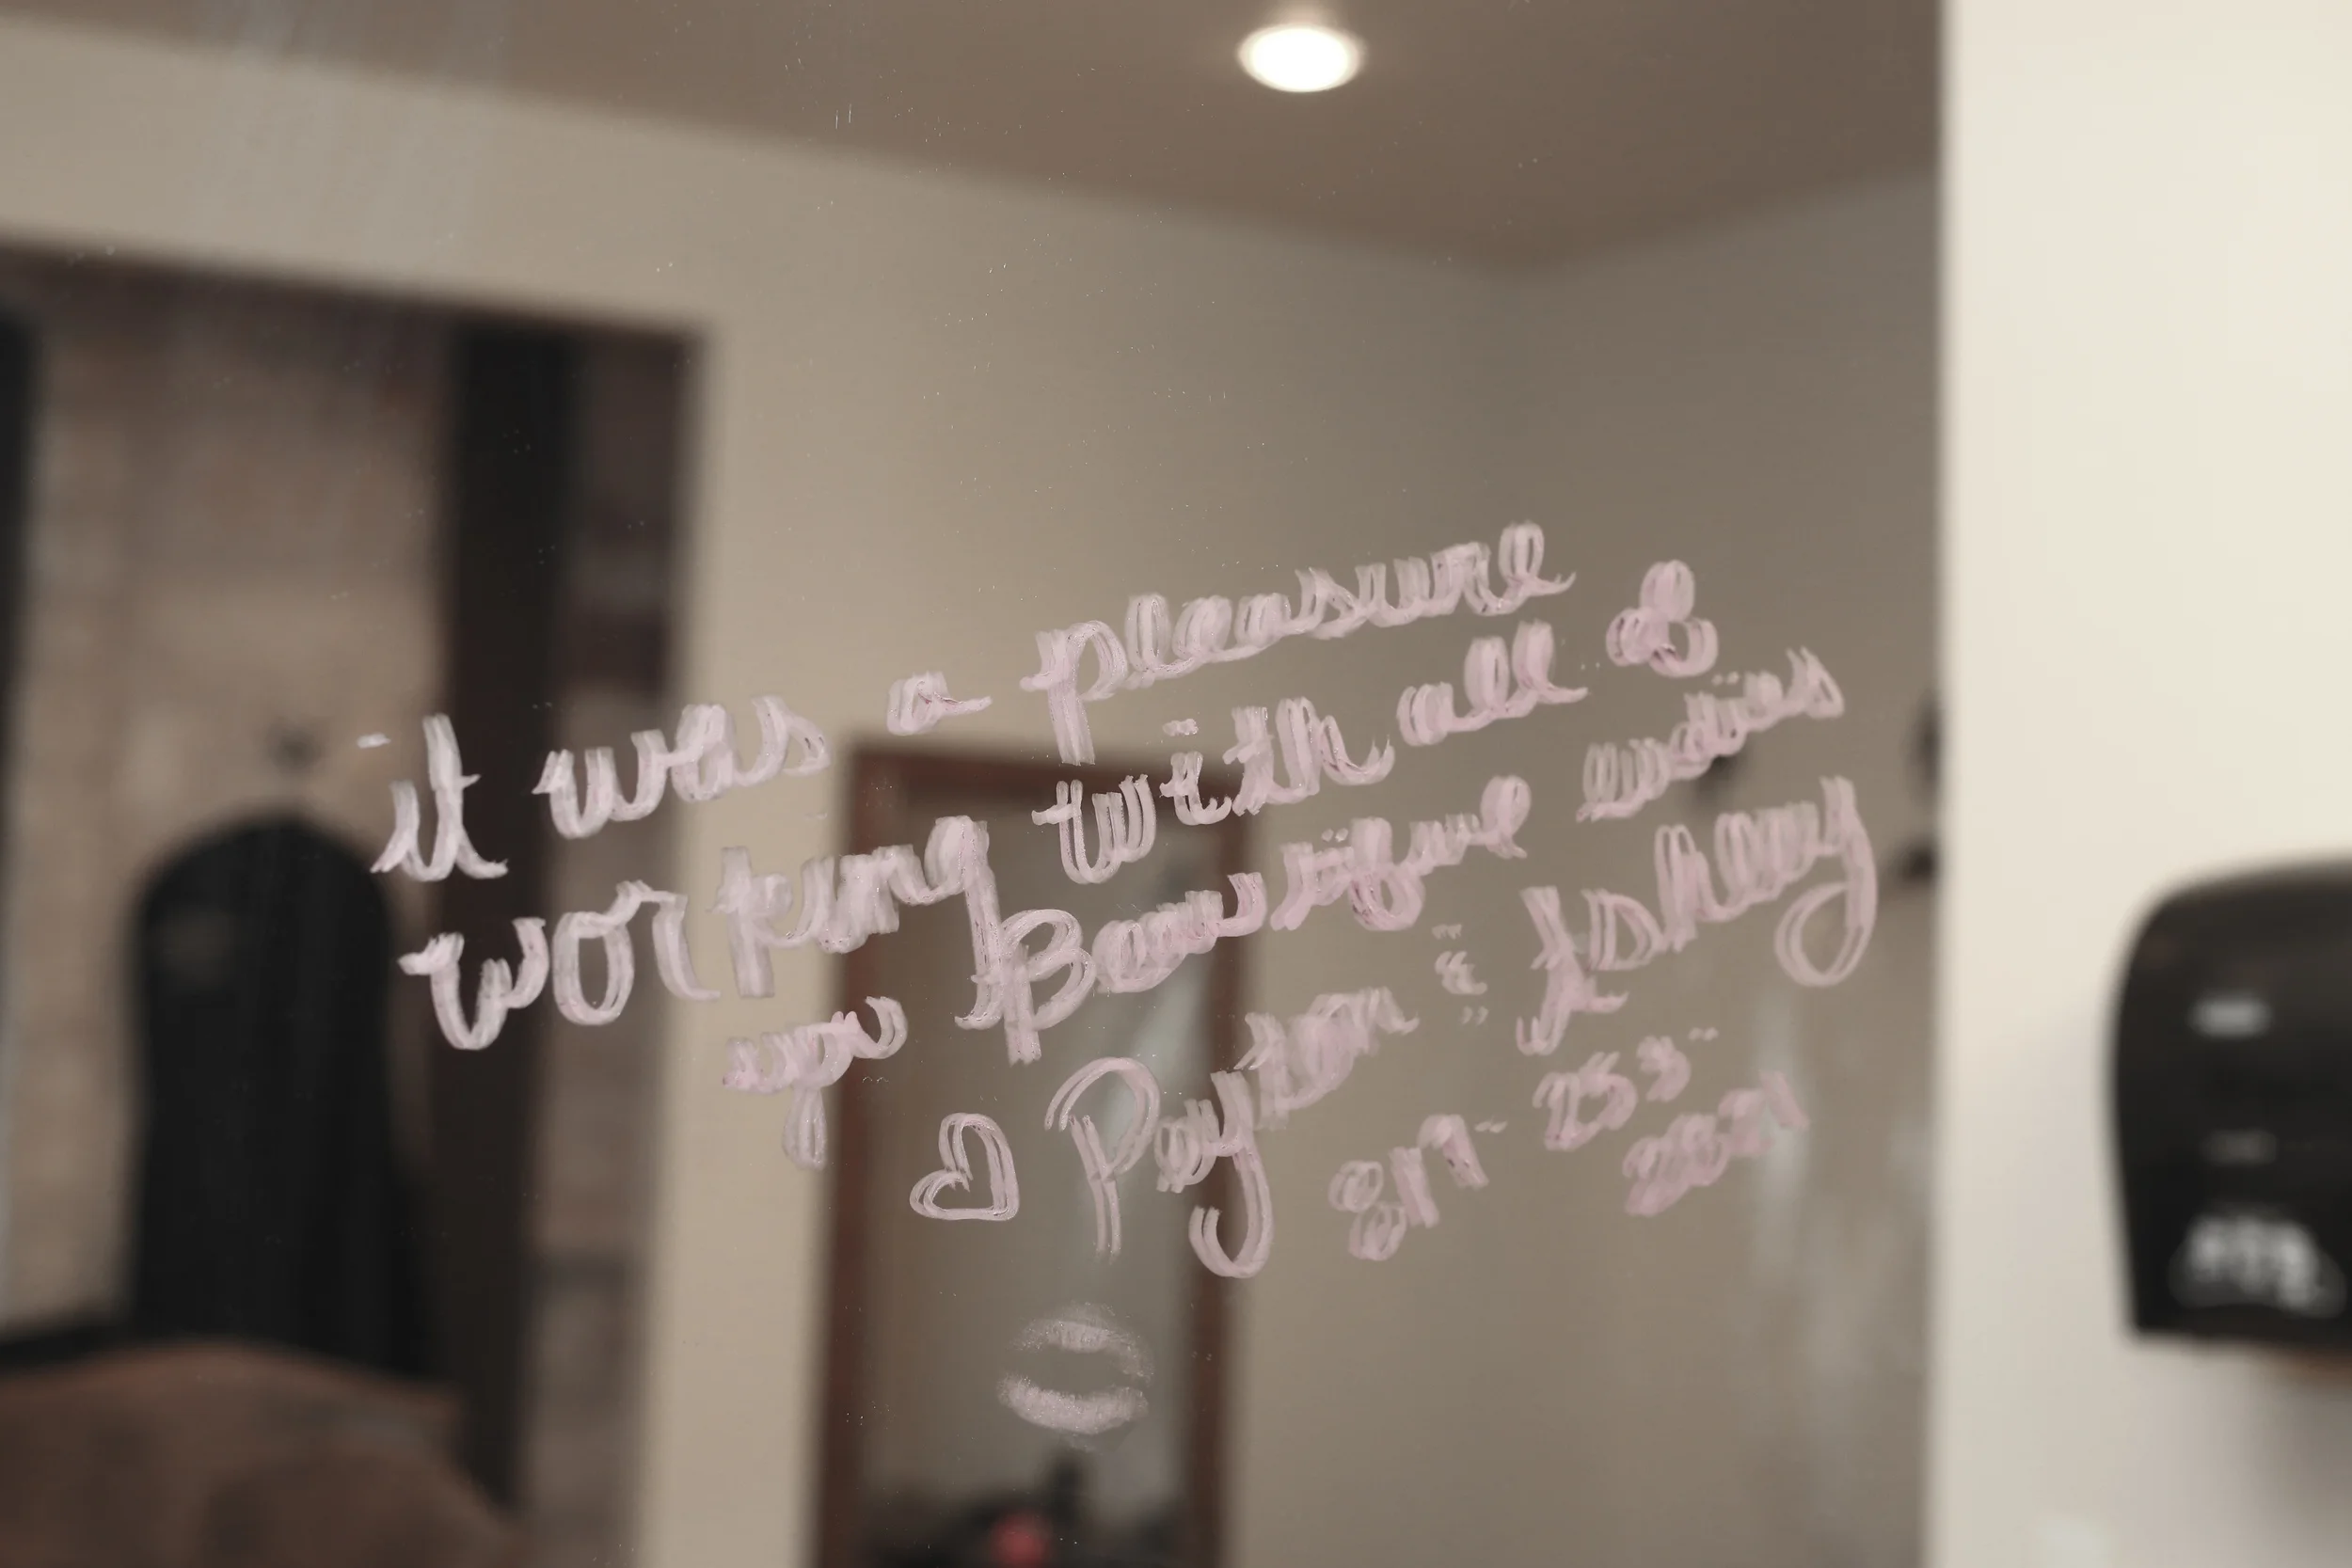 it was a pleasure
working with all of
you Beautiful ladies
♡ Payton & Ashley
2021